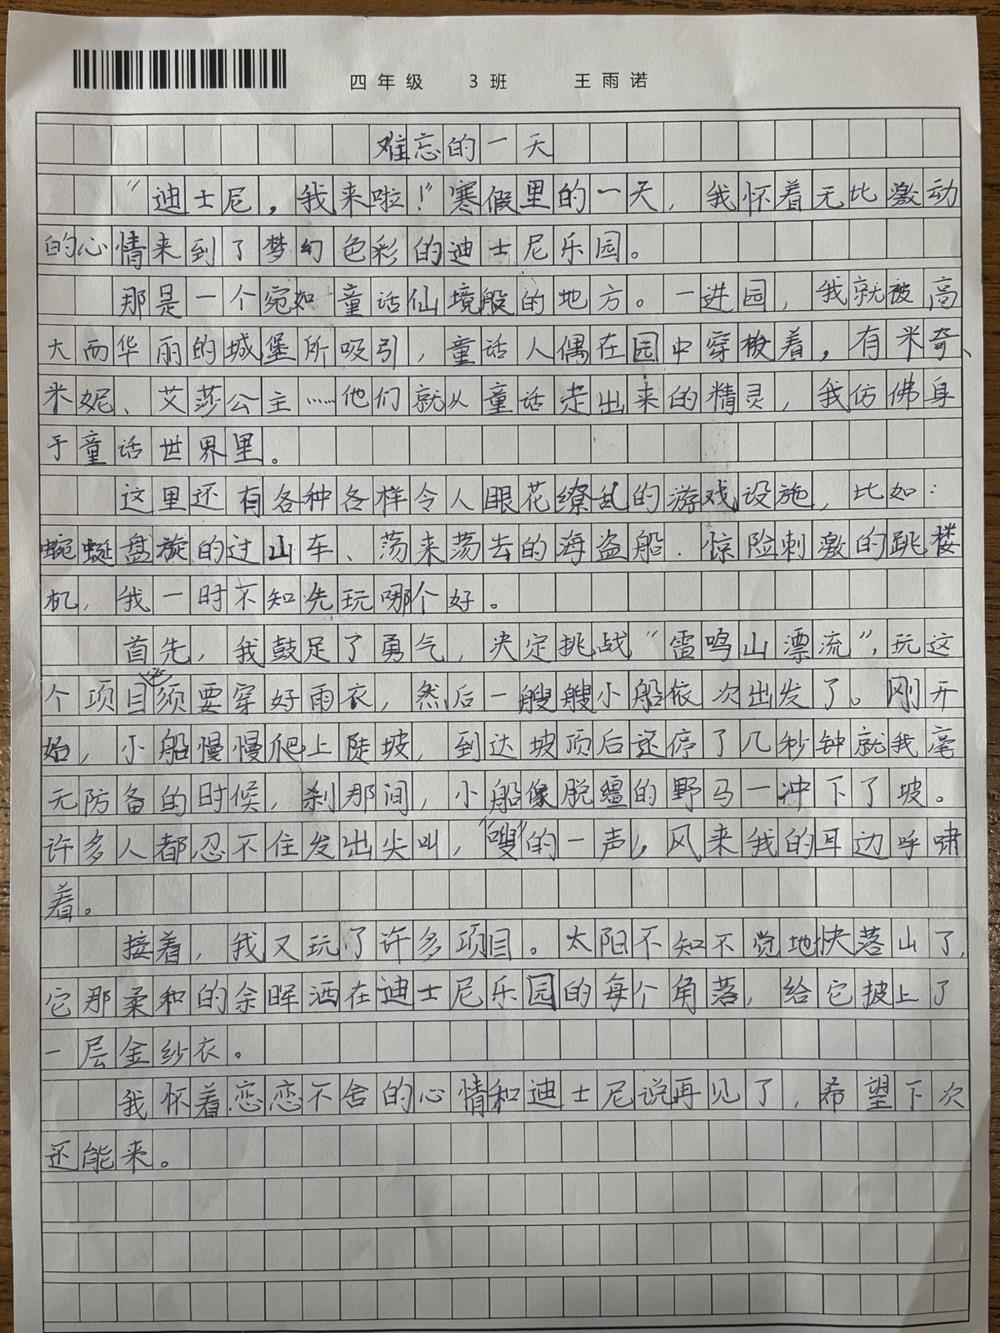 四年级 3班 王雨诺
难忘的一天
“迪士尼，我来啦！”寒假里的一天，我怀着无比激动
的心情来到了梦幻色彩的迪士尼乐园。
那是一个宛如童话仙境般的地方。一进园，我就被高
大而华丽的城堡所吸引，童话人偶在园中穿梭着，有米奇、
米妮、艾莎公主……他们就从童话走出来的精灵，我仿佛身
于童话世界里。
这里还有各种各样令人眼花缭乱的游戏设施，比如：
蜿蜒盘旋的过山车、荡来荡去的海盗船、惊险刺激的跳楼
机，我一时不知先玩哪个好。
首先，我鼓足了勇气，决定挑战“雷鸣山漂流”，玩这
个项目必须要穿好雨衣，然后一艘艘小船依次出发了。刚开
始，小船慢慢爬上陡坡，到达坡顶后还停了几秒钟就我毫
无防备的时候，刹那间，小船像脱缰的野马一冲下了坡。
许多人都忍不住发出尖叫，“嗖”的一声，风来我的耳边呼啸
着。
接着，我又玩了许多项目。太阳不知不觉地快落山了，
它那柔和的余晖洒在迪士尼乐园的每个角落，给它披上了
一层金纱衣。
我怀着恋恋不舍的心情和迪士尼说再见了，希望下次
还能来。